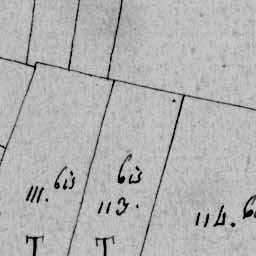 111. bis
bis
113.
114.
T
T